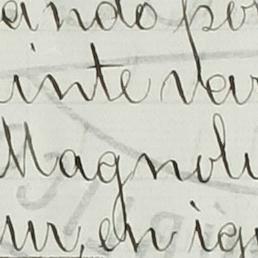 ando por
inte var
Magnoli
ur, en ig